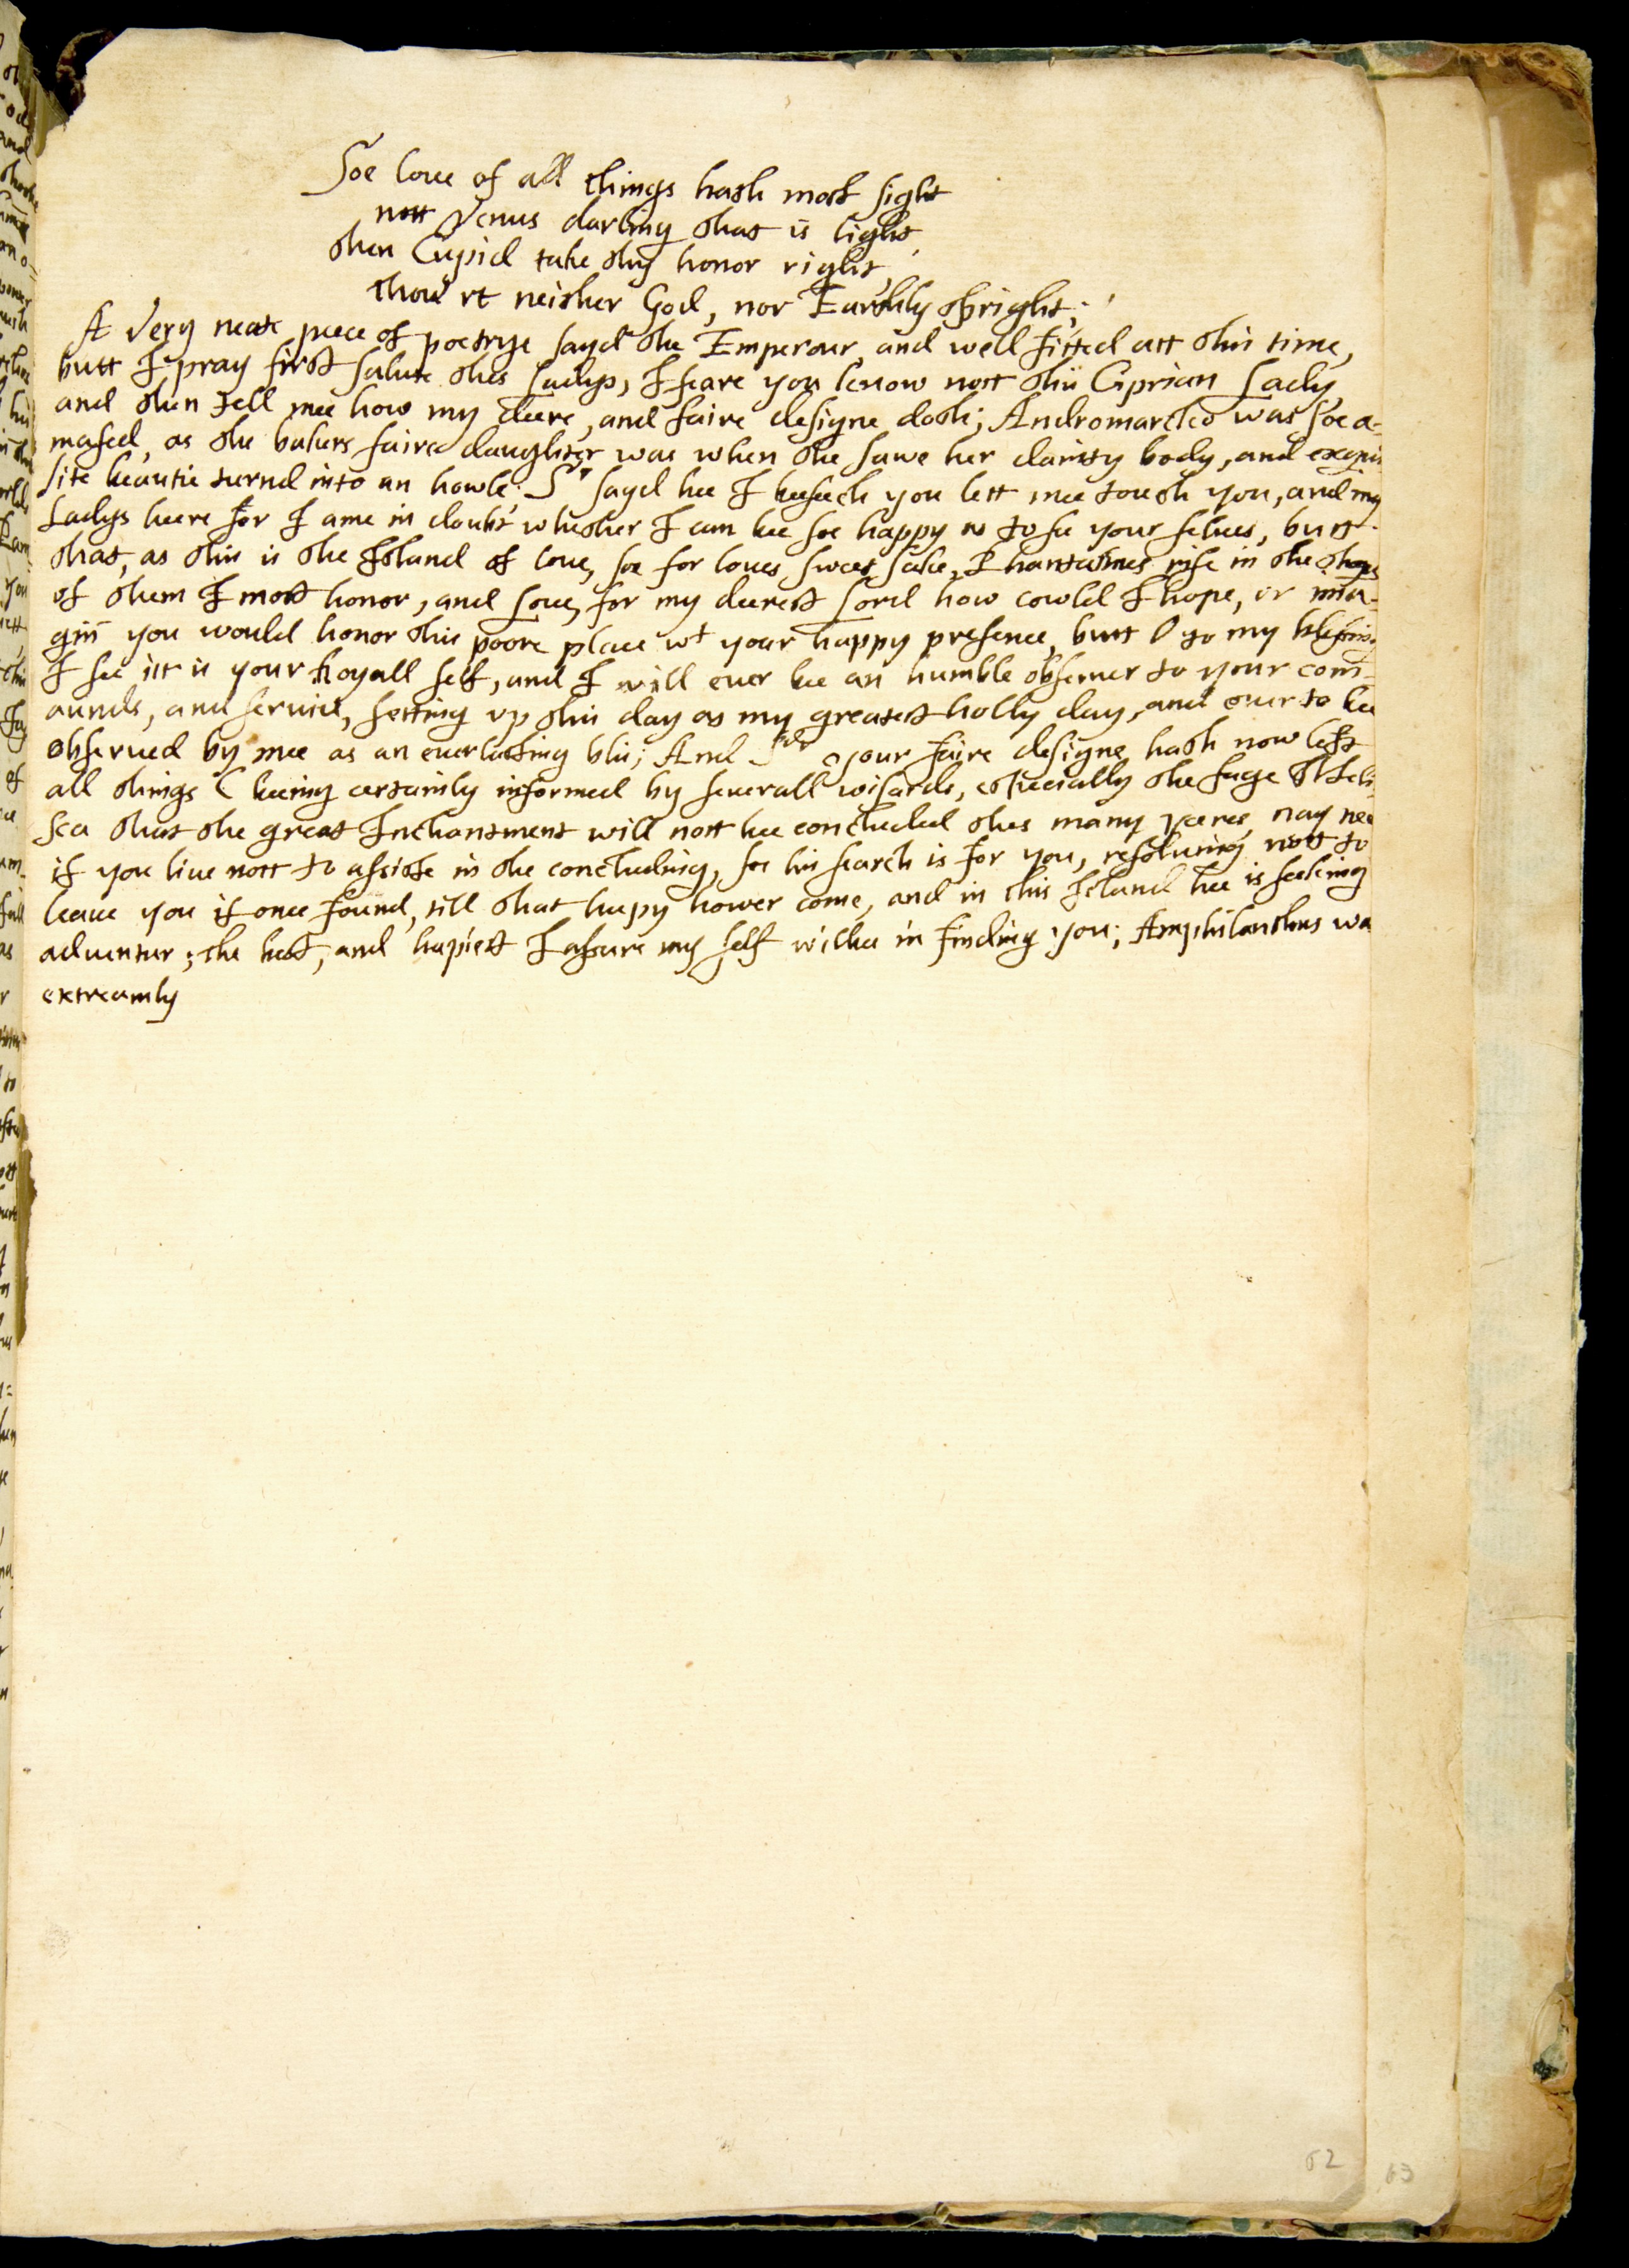 Soe loue of all things hath most sight
nott Venus darling that is light
then Cupid take thy honor right
thou'rt neither God, nor Earthly spright;
A very neate peece of poetrye sayd the Emperour, and well fitted att this time,
butt I pray first salute thes Ladys, I feare you know nott this Ciprian Lady,
and then tell mee how my deere, and faire designe doth; Andromarcko was soe a=
mased, as the bakers faire daughter was when she sawe her dainty body, and exqui
site beautie turnd into an howle: Sr sayd hee I beseech you lett mee touch you, and my
Ladys heere for I ame in doubt whether I can bee soe happy as to see your selves, butt
that, as this is the Island of love, soe for loves sweet sake, Phantasmes rise in the shaps
of them I most honor, and love, for my deerest Lord how cowld I hope, or ima=
gin you would honor this poore place wt your happy presence, butt O to my blessing
I see itt is your Royall self, and I will ever bee an humble observer to your com=
aunds, and service, setting vp this day as my greatest holly day, and ever to bee
observed by mee as an everlasting blis; And Sr your faire designe hath now left
all things (beeing certainly informed by severall wisards, especially the sage Meli
sea that the great Inchantment will nott bee concluded thes many yeeres, nay never
if you live nott to assiste in the concluding, soe his search is for you, resolving nott to
leave you if once found, till that hapy hower come, and in this Island hee is seeking
adventur; the best, and hapiest I assure my self wilbee in finding you; Amphilanthus wa
extreamly
62
63